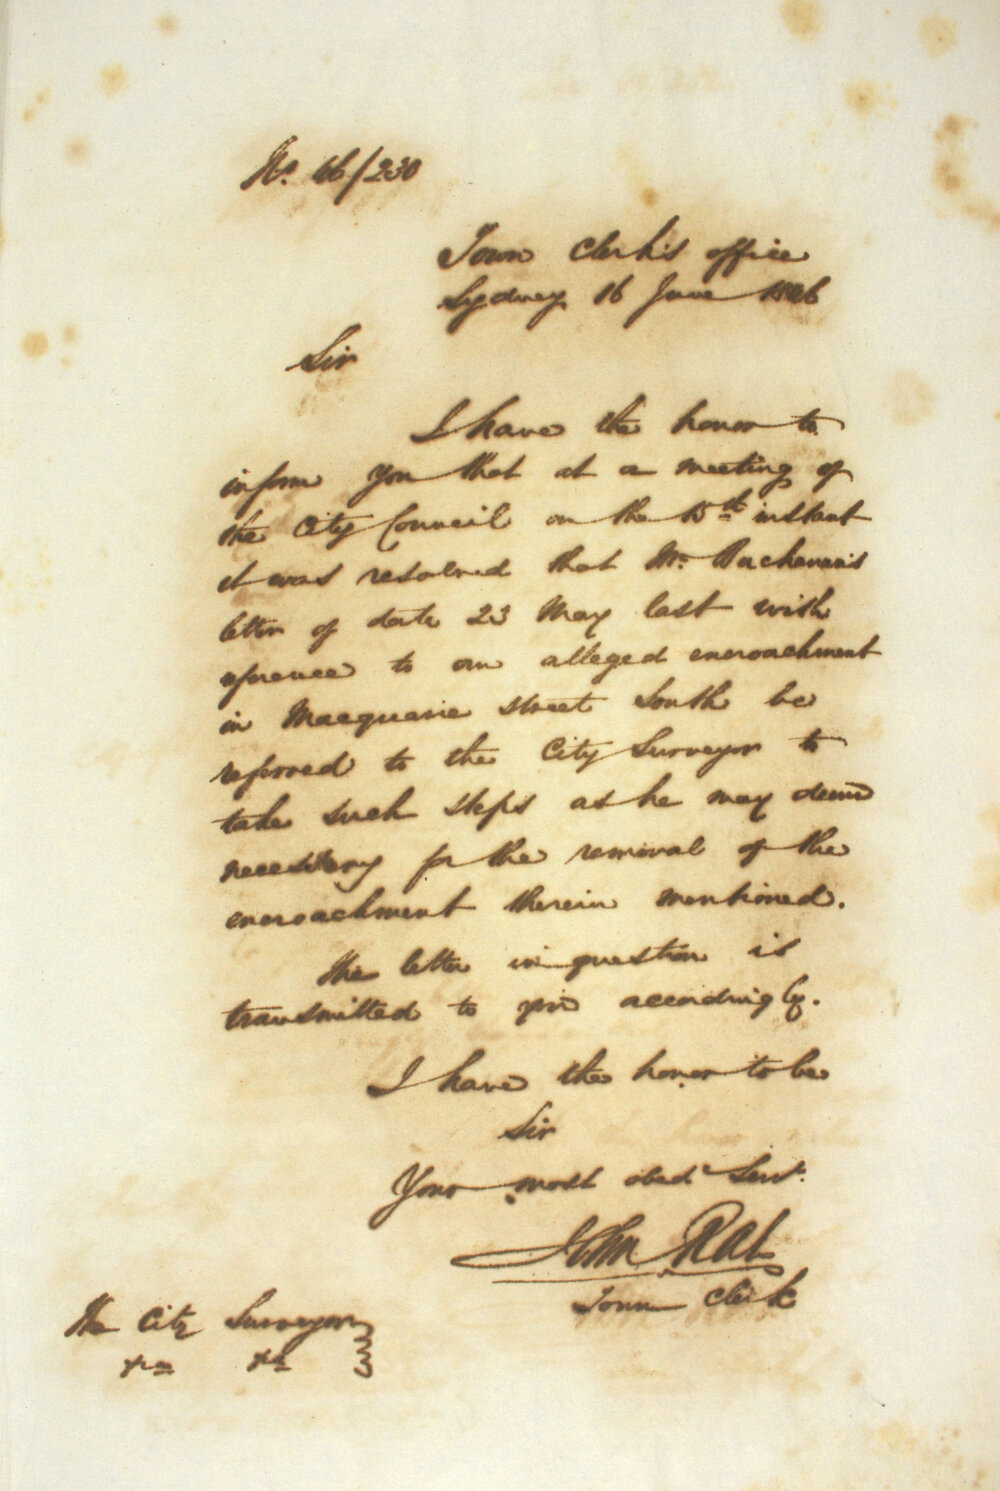 No. 46/230
Town Clerk's office
Sydney 16 June 1846
Sir
I have the honor to
inform you that at a meeting of
the City Council on the 15th instant
it was resolved that Mr. Buchanan's
letter of date 23 May last with
eference to an alleged encroachment
in Macquarie street South be
referred to the City Surveyor to
take such steps as he may deem
necessary for the removal of the
encroachment therein mentioned.
The letter in question is
transmitted to you accordingly.
I have the honor to be
Sir
Your most obedt Servt.
John Rae
Town Clerk
The City Surveyor